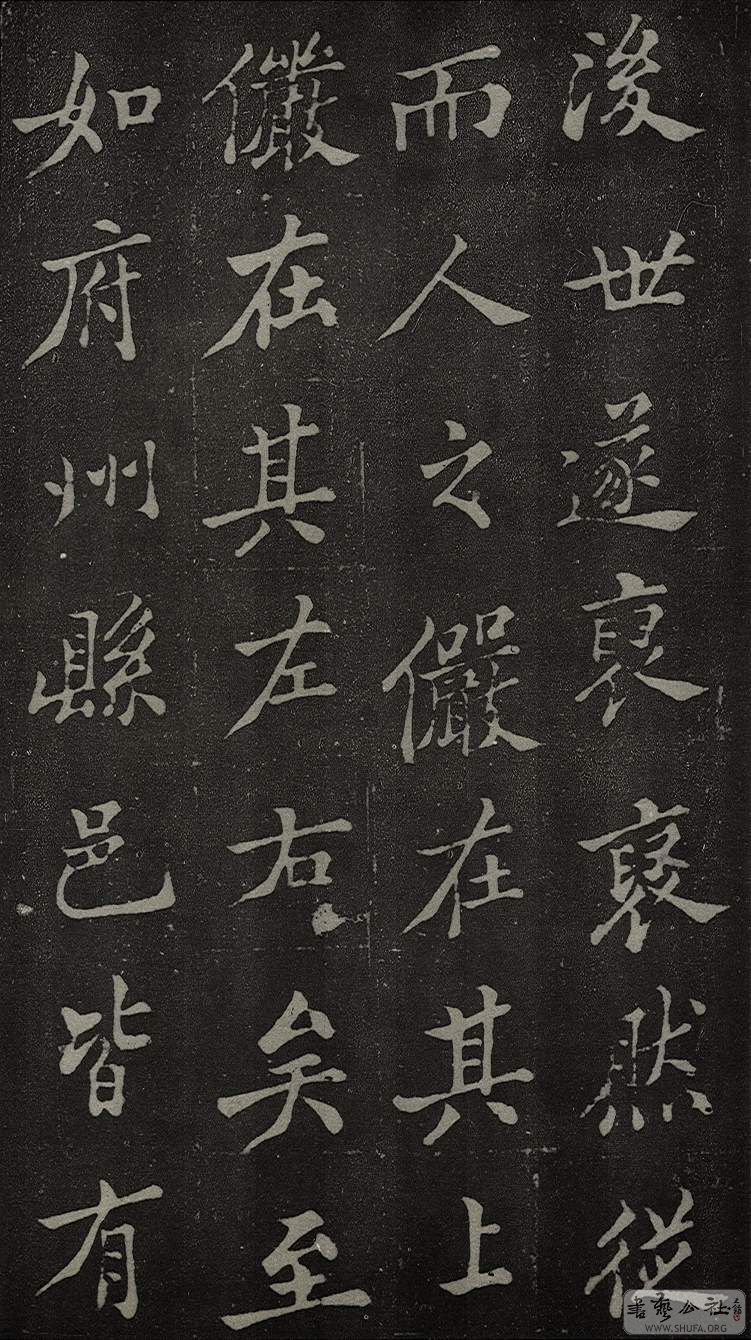 後世遂然從
而人之儼在其上
儼在其左右矣至
如府州縣邑皆有
書藝公社
WWW.SHUFA.ORG